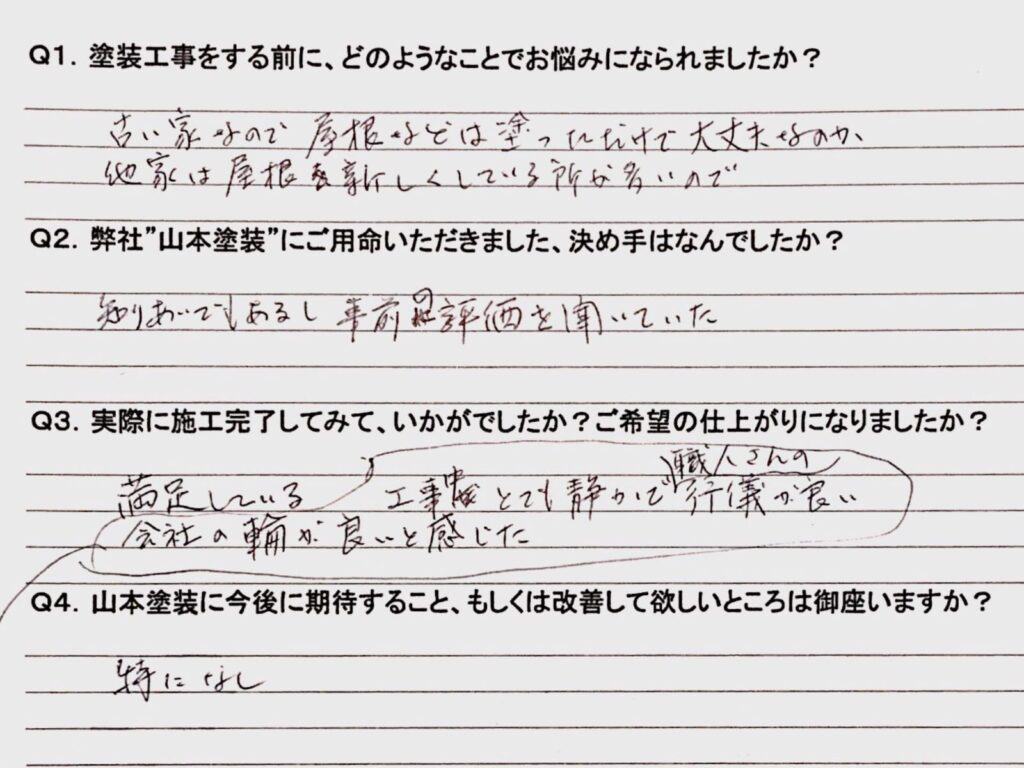 Q1. 塗装工事をする前に、どのようなことでお悩みになられましたか？
古い家なので 屋根などは塗っただけで大丈夫なのか、
他家は屋根を新しくしている所が多いので
Q2. 弊社”山本塗装”にご用命いただきました、決め手はなんでしたか？
知りあいでもあるし 事前 評価を聞いていた
Q3. 実際に施工完了してみて、いかがでしたか？ご希望の仕上がりになりましたか？
職人さんの
満足している 工事中 とても静かで 行儀が良い
会社の輪が良いと感じた
Q4. 山本塗装に今後に期待すること、もしくは改善して欲しいところは御座いますか？
特になし